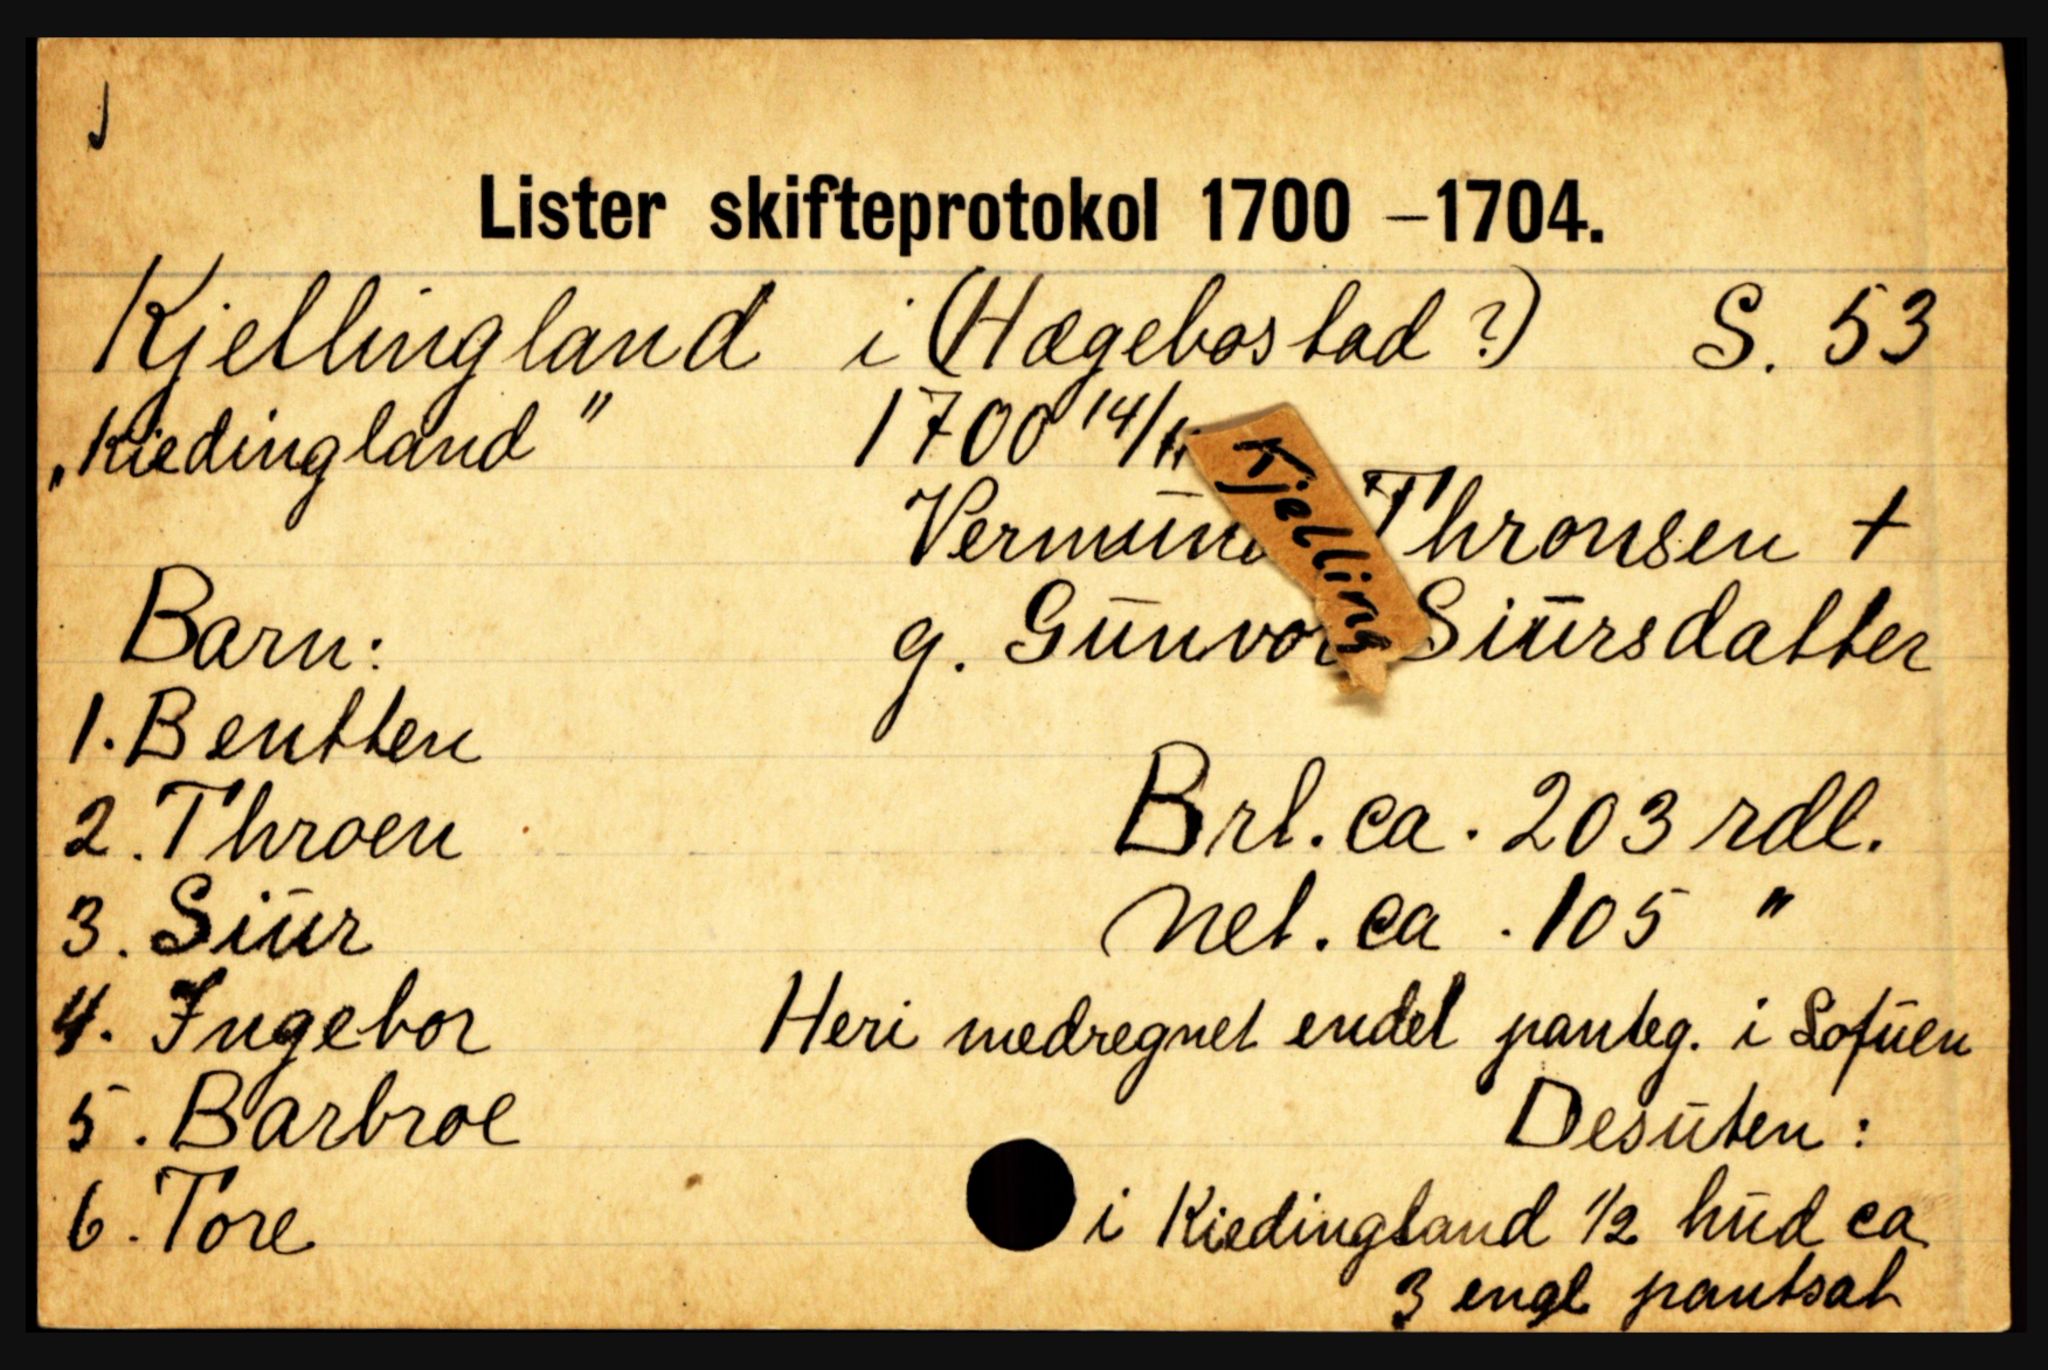 Lister skifteprotokol 1700 – 1704.
Kjellingland i (Hægebostad ?) S. 53
„Kiedingland” 1700 14/11
Kjelling
Vermund Thronsen +
Barn: g. Gunvor Siursdatter
1. Bentten
2. Throen Brl. ca. 203 rdl.
3. Siur net. ca. 105 "
4. Ingebor Heri medregnet endel panteg. i Lofuen
5. Barbroe Desuten :
6. Tore i Kiedingland 1/2 hud ca
3 engl pantsat